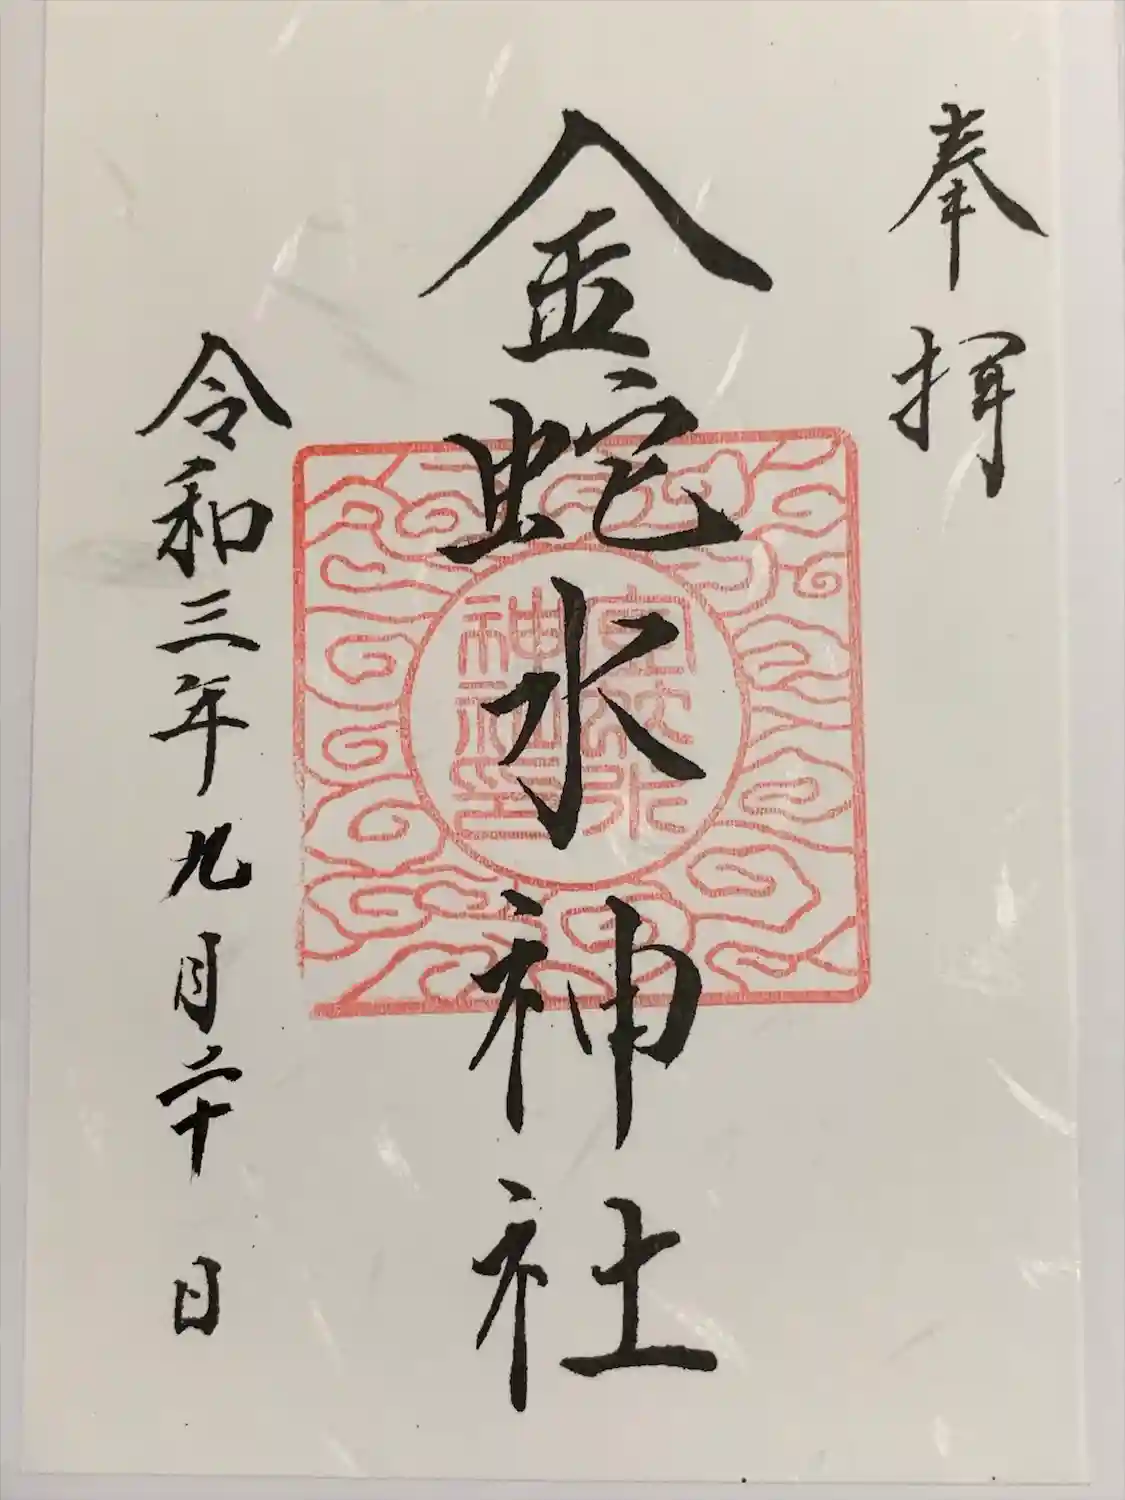 奉拝
金蛇水神社
金蛇水
神社印
令和三年九月二十日